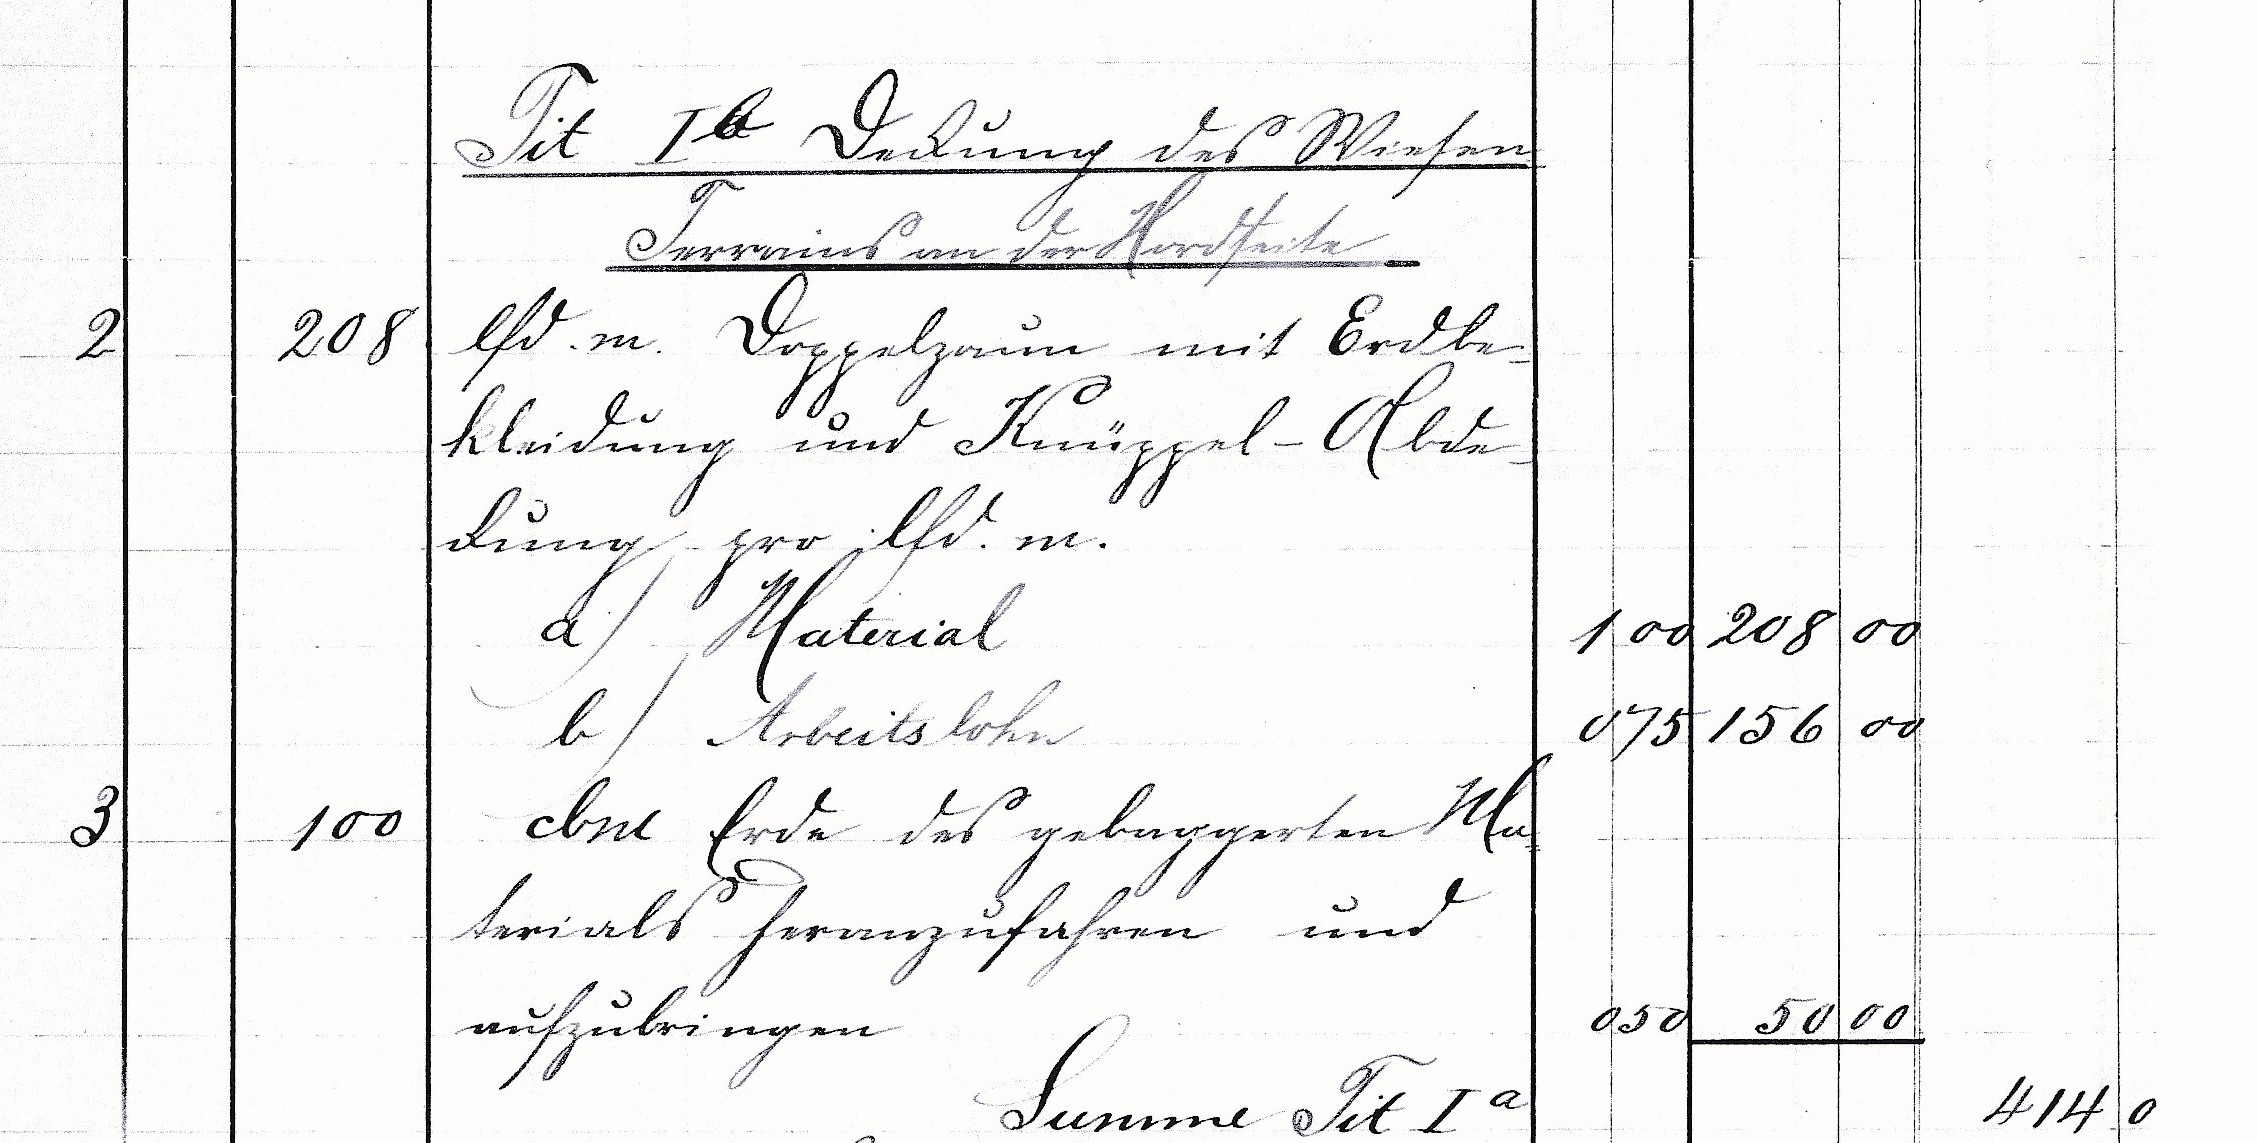 Tit Ib Deckung des Wiesen
Terrains an der Nordseite
2 208 lfd. m. Doppelzaun mit Erdbe-
kleidung und Knüppel-Abde-
ckung pro lfd. m.
a) Material 1 00 208 00
b) Arbeitslohn 0 75 156 00
3 100 cbm Erde des gebaggerten Ma-
terials heranzufahren und
aufzubringen 0 50 50 00
Summe Tit Ia 414 0